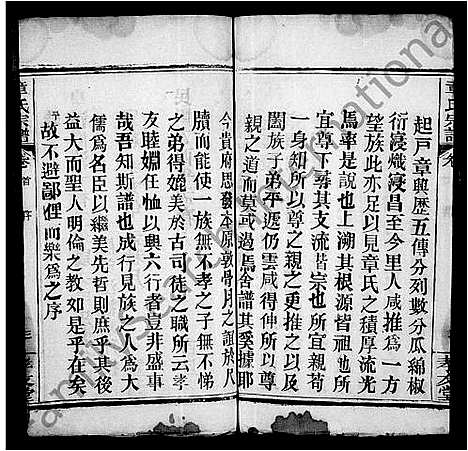 起戸章與歷五傳分列數分瓜綿椒
衍寖熾寖昌至今里人咸推為一方
望族此亦足以見章氏之積厚流光
焉率是說也上溯其根源皆祖也所
宜尊下尋其支流皆宗也所宜親苟
一身知所以尊之親之更推之以及
闔族子弟平遜仍雲咸得伸所以尊
親之道而莫或過焉舍譜其奚據耶
今貴府思發本原敦骨月之誼於八
而能使一族無不孝之子無不悌
之弟得媲美於古司徒之職所云孝
友睦婣任恤以與六行者豈非盛事
哉吾知斯譜也成行見族之人為大
儒為名臣以繼美先哲則庶乎其後
益大而聖人明倫之教如是乎在矣
故不避鄙俚而樂為之序
章氏宗譜 卷 首 序
孝友堂